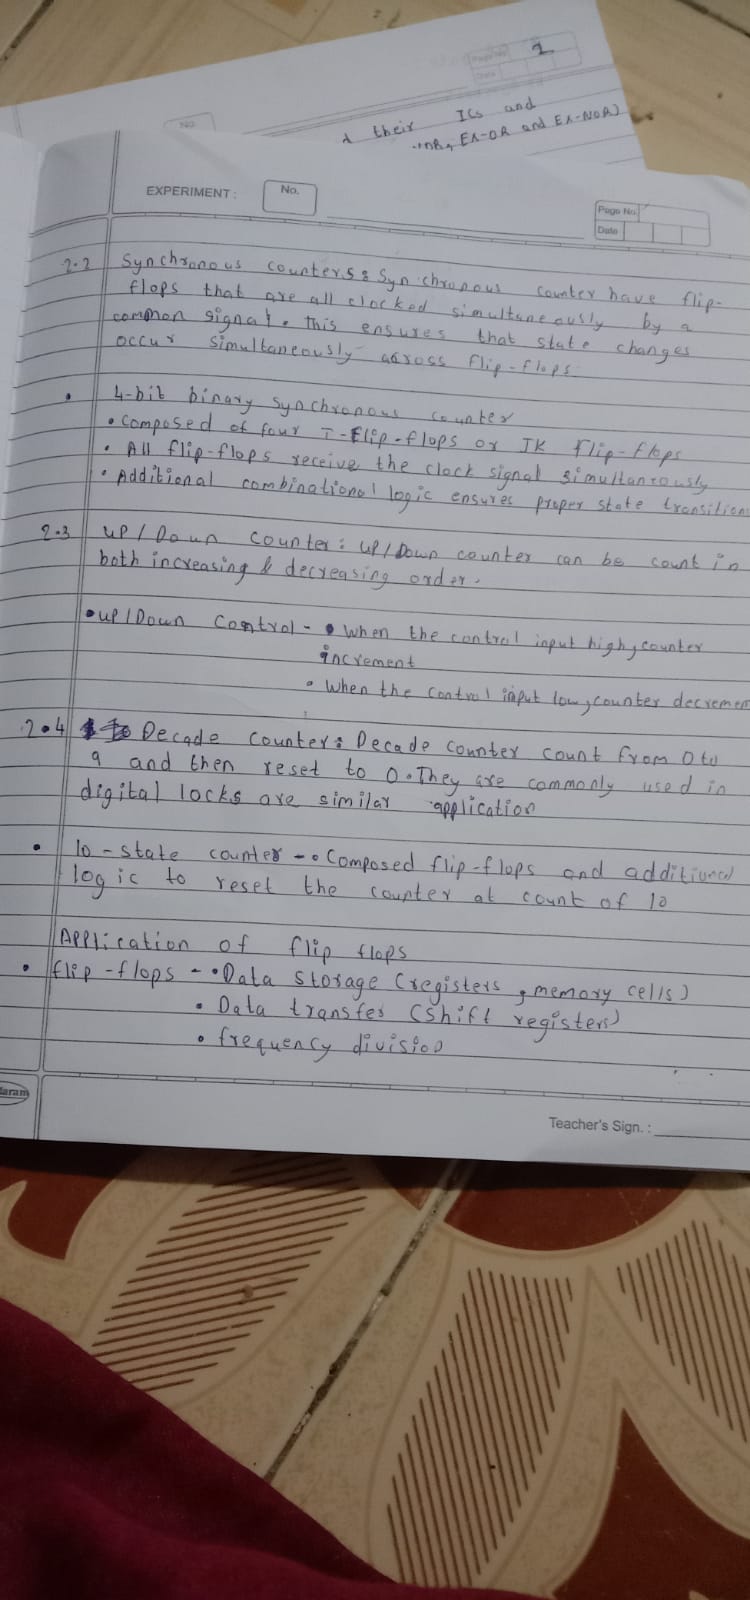 Page No. 1
Date
No.
their ICs and
EX-OR and EX-NOR)
EXPERIMENT :
No.
Page No.
Date
2.2 Synchronous counters: Synchronous counter have flip-
flops that are all clocked simultaneously by a
common signal. This ensures that state changes
occur simultaneously across flip-flops.
• 4-bit binary synchronous counter
• composed of four T-flip-flops or JK flip-flops
• All flip-flops receive the clock signal simultaneously
• Additional combinational logic ensures proper state transition
2.3 UP/Down Counter: UP/Down counter can be count in
both increasing & decreasing order.
• UP/Down Control - • When the control input high, counter
increment
• When the control input low, counter decremen
2.4 Decade counter: Decade counter count from 0 to
9 and then reset to 0. They are commonly used in
digital locks are similar application
• 10-state counter - • Composed flip-flops and additional
logic to reset the counter at count of 10
Application of flip flops
• flip-flops - • Data storage (registers, memory cells)
• Data transfer (shift registers)
• frequency division
Teacher's Sign. :